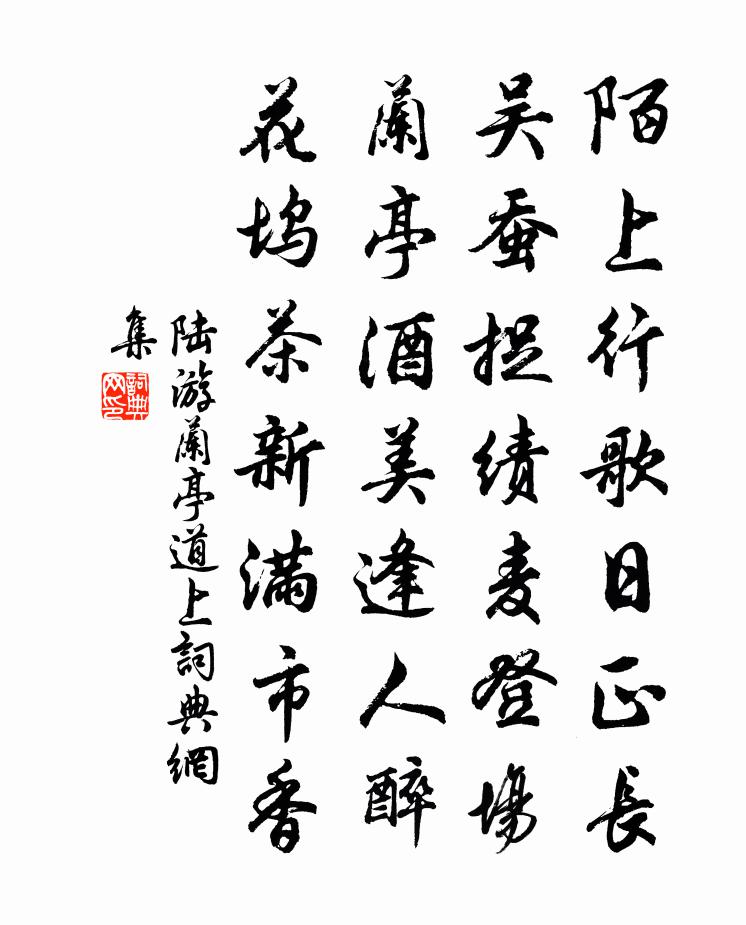 陌上行歌日正長
吴蚕捉績麦登場
蘭亭酒美逢人醉
花坞茶新滿市香
陆游蘭亭道上詞典網
集
詞典
网印